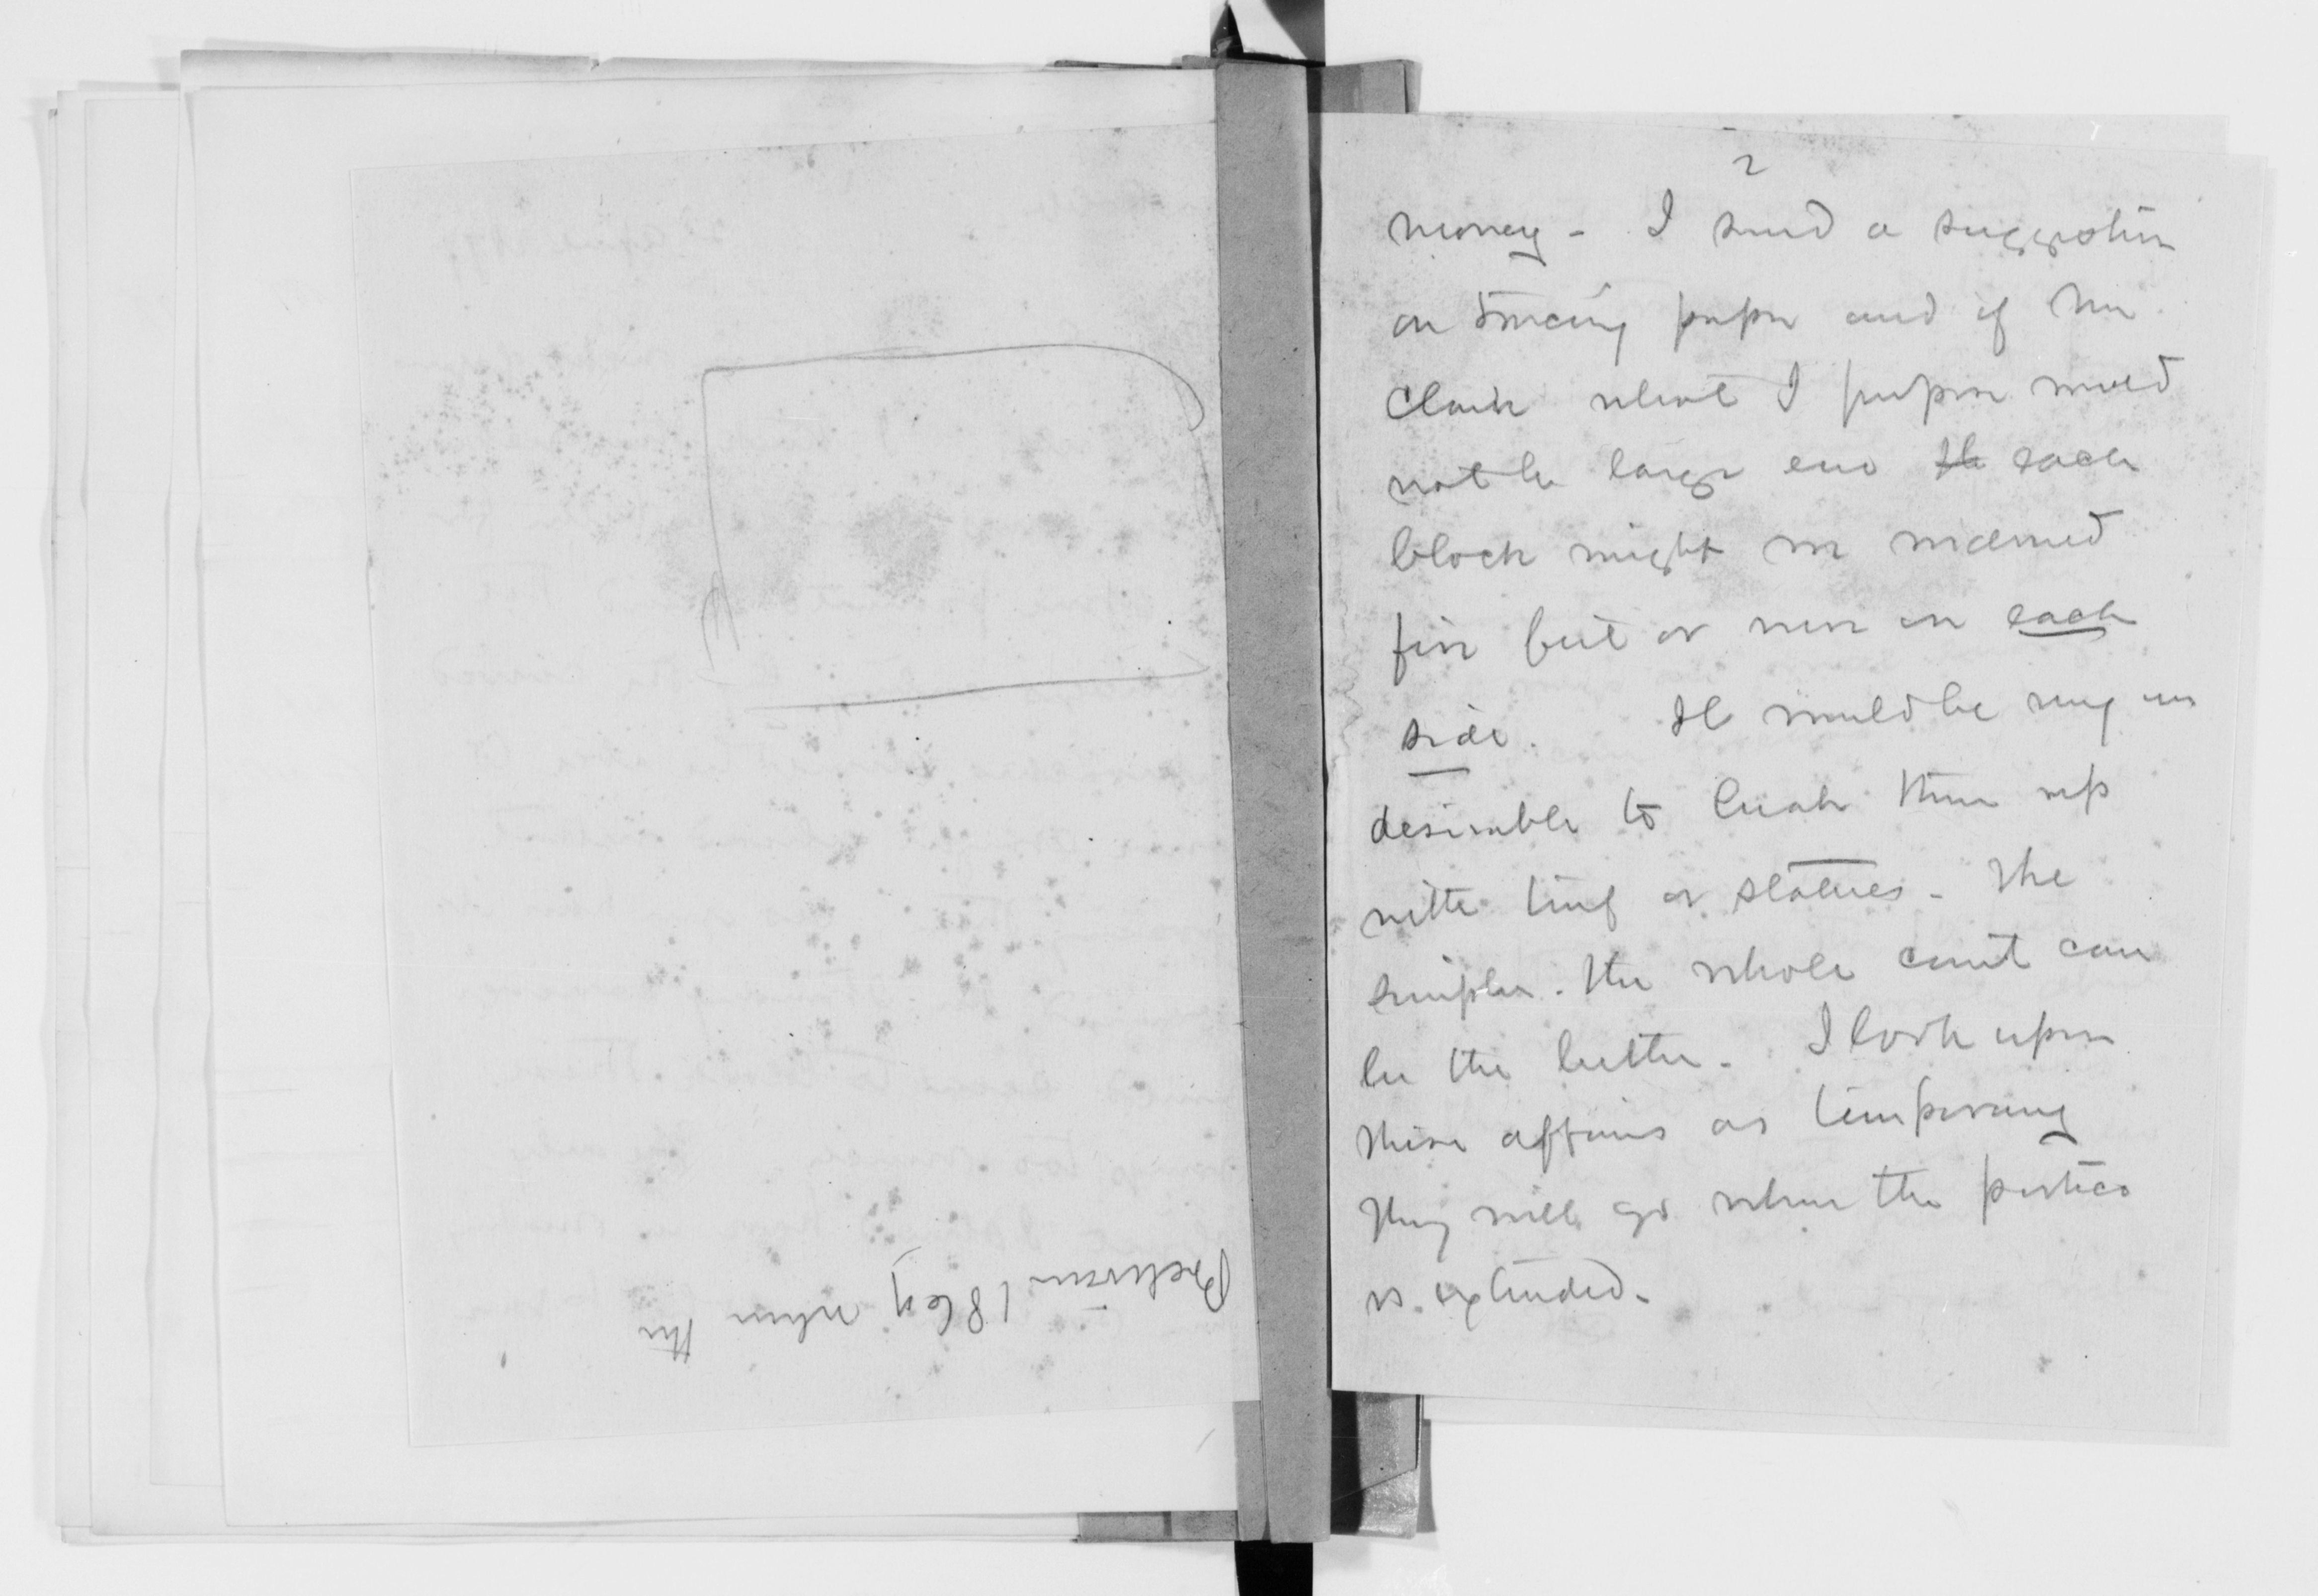 Between 1869 when the
2
money - I send a suggestion
on tracing paper and if Mr
Clark what I propose would
not be large eno the each
block might be widened
five feet or more on each
side. It would be very un
desirable to break them up
with turf or statues - The
simpler the whole court can
be the better - I look upon
these affairs as temporary
They will go when the portico
is extended -